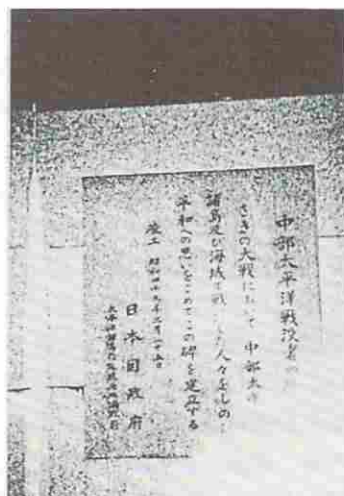 中部太平洋戦没者の
さきの大戦において 中部太
諸島及び海域で戦 した人々をしの
平和への思いをこめてこの碑を建立する
竣工 昭和四十九年三月二十五日
日本国政府